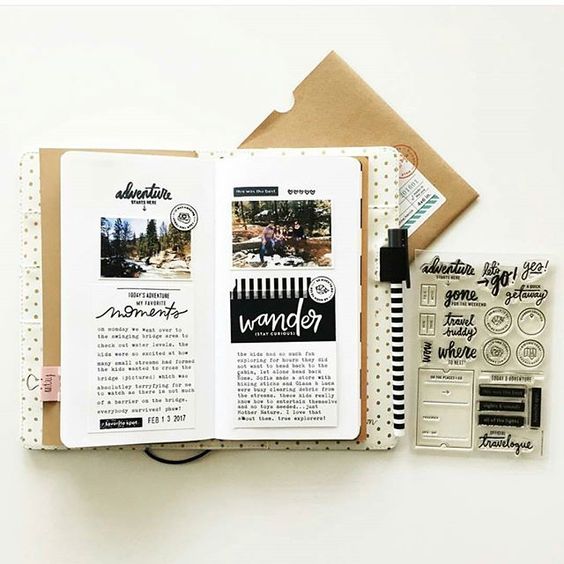 adventure
STARTS HERE
TODAY'S ADVENTURE
MY FAVORITE
moments
on monday we went over to
the swinging bridge area to
check out water levels. the
kids were so excited at how
many small streams had formed.
the kids wanted to cross the
bridge (pictured) which was
absolutely terrifying for me
to watch as there is not much
of a barrier on the bridge.
everybody survived! phew!
favorite spot.
FEB 13 2017
this was the best.
wander
(STAY CURIOUS)
the kids had so much fun
exploring for hours they did
not want to head back to the
cabin, let alone head back
home. Sofia made a store with
hiking sticks and Giana & Luca
were busy clearing debris from
the streams. these kids really
know how to entertain themselves
and no toys needed...just
Mother Nature. I love that
about them. true explorers!
adventure
STARTS HERE
let's
go!
yes!
gone
FOR THE WEEKEND
A QUICK
getaway
travel
buddy
wow
where
TO NEXT?
OH THE PLACES I GO
TODAY'S ADVENTURE
this was the best.
sights & sounds
all of the lights
OFFICIAL
travelogue